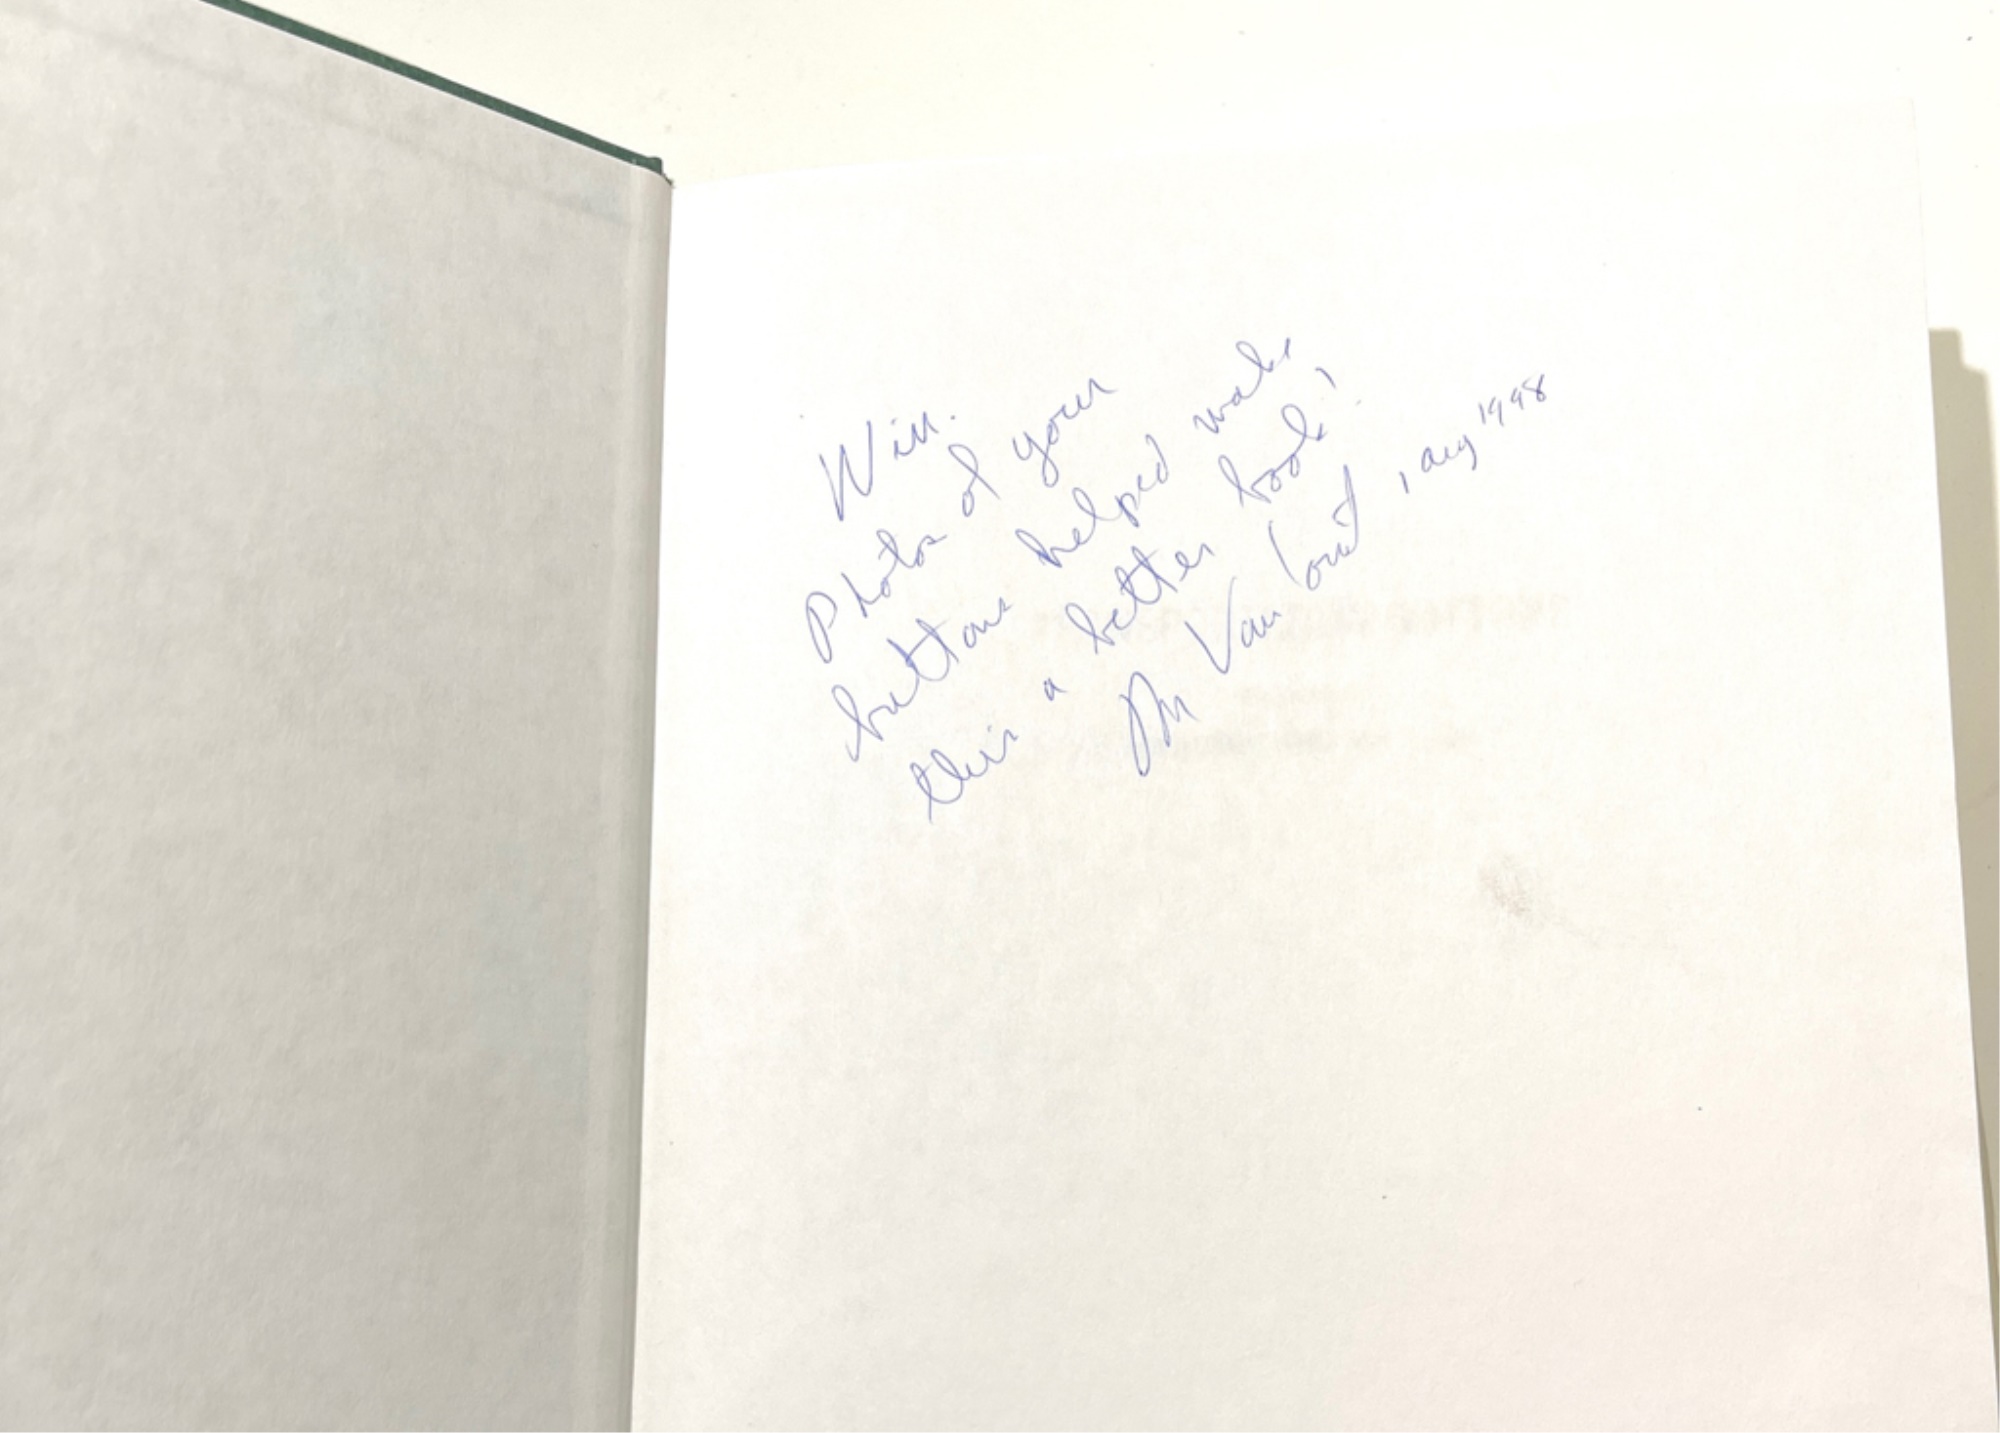 Will.
Photos of your
buttons helped make
this a better book!
Van Cort, Aug 1998